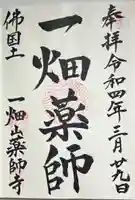 奉拝令和四年三月廿九日
一畑薬師
佛国土
一畑山薬師寺